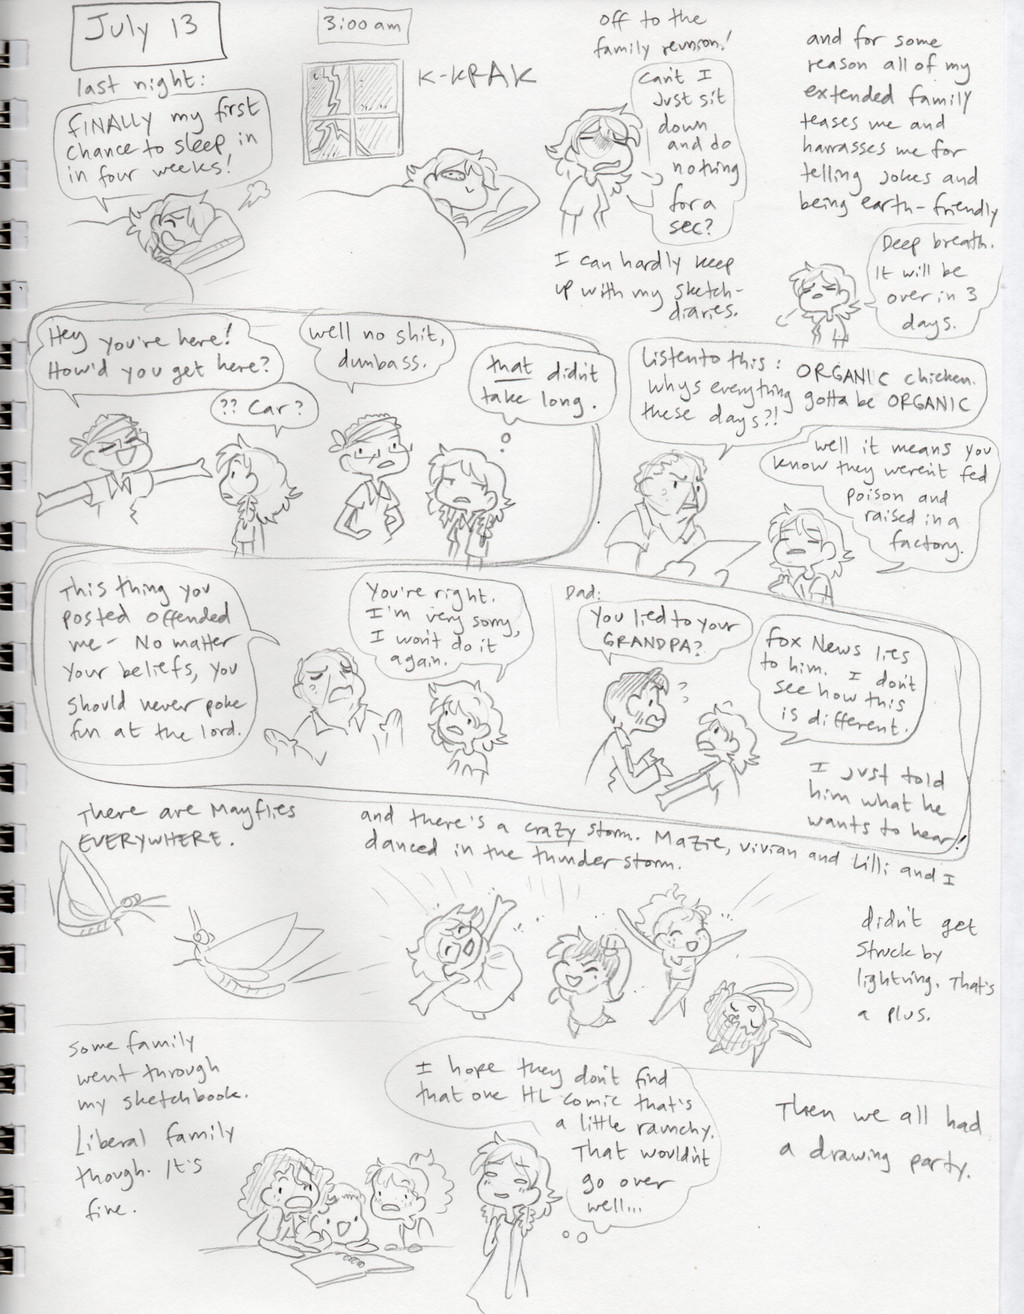 July 13
last night:
FINALLY my first
chance to sleep in
in four weeks!
3:00 am
K-KRAK
off to the
family reunion!
Can't I
Just sit
down
and do
nothing
for a
sec?
I can hardly keep
up with my sketch-
diaries.
and for some
reason all of my
extended family
teases me and
harrasses me for
telling jokes and
being earth-friendly
Deep breath.
It will be
over in 3
days.
Hey you're here!
How'd you get here?
?? Car?
well no shit,
dumbass.
that didn't
take long.
Listen to this: ORGANIC chicken.
Whys everything gotta be ORGANIC
these days?!
well it means you
know they weren't fed
poison and
raised in a
factory.
This thing you
posted offended
me - No matter
your beliefs, you
should never poke
fun at the lord.
You're right.
I'm very sorry,
I won't do it
again.
Dad:
You lied to your
GRANDPA?
? ?
Fox News lies
to him. I don't
see how this
is different.
I just told
him what he
wants to hear!
There are Mayflies
EVERYWHERE.
and there's a crazy storm. Mazie, vivian and Lilli and I
danced in the thunderstorm.
didn't get
struck by
lightning. That's
a plus.
Some family
went through
my sketchbook.
Liberal family
though. It's
fine.
I hope they don't find
that one HL comic that's
a little raunchy.
That wouldn't
go over
well...
Then we all had
a drawing party.